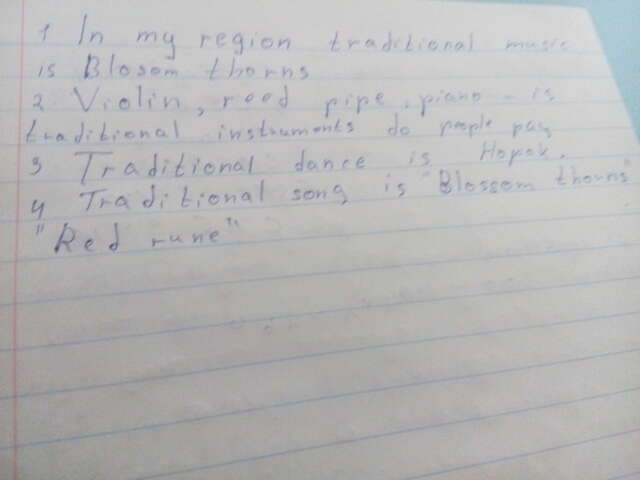 1 In my region traditional music
is Blosom thorns
2 Violin, reed pipe, piano - is
traditional instruments do people pay
3 Traditional dance is Hopak.
4 Traditional song is "Blossom thorns"
"Red rune"